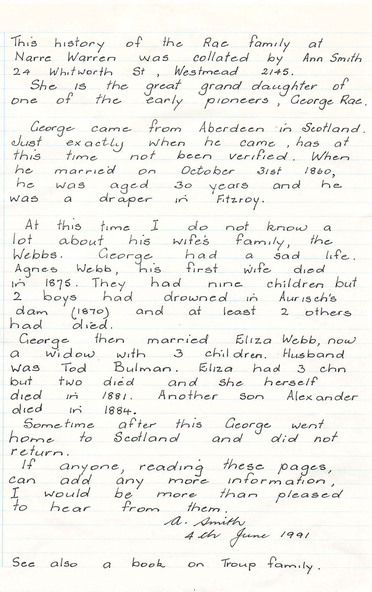 This history of the Rae family at
Narre Warren was collated by Ann Smith
24 Whitworth St, Westmead 2145.
She is the great grand daughter of
one of the early pioneers, George Rae.
George came from Aberdeen in Scotland.
Just exactly when he came, has at
this time not been verified. When
he married on October 31st 1860,
he was aged 30 years and he
was a draper in Fitzroy.
At this time I do not know a
lot about his wife's family, the
Webbs. George had a sad life.
Agnes Webb, his first wife died
in 1875. They had nine children but
2 boys had drowned in Aurisch's
dam (1870) and at least 2 others
had died.
George then married Eliza Webb, now
a widow with 3 children. Husband
was Tod Bulman. Eliza had 3 chn
but two died and she herself
died in 1881. Another son Alexander
died in 1884.
Sometime after this George went
home to Scotland and did not
return.
If anyone, reading these pages,
can add any more information,
I would be more than pleased
to hear from them.
A. Smith
4th June 1991
See also a book on Troup family.